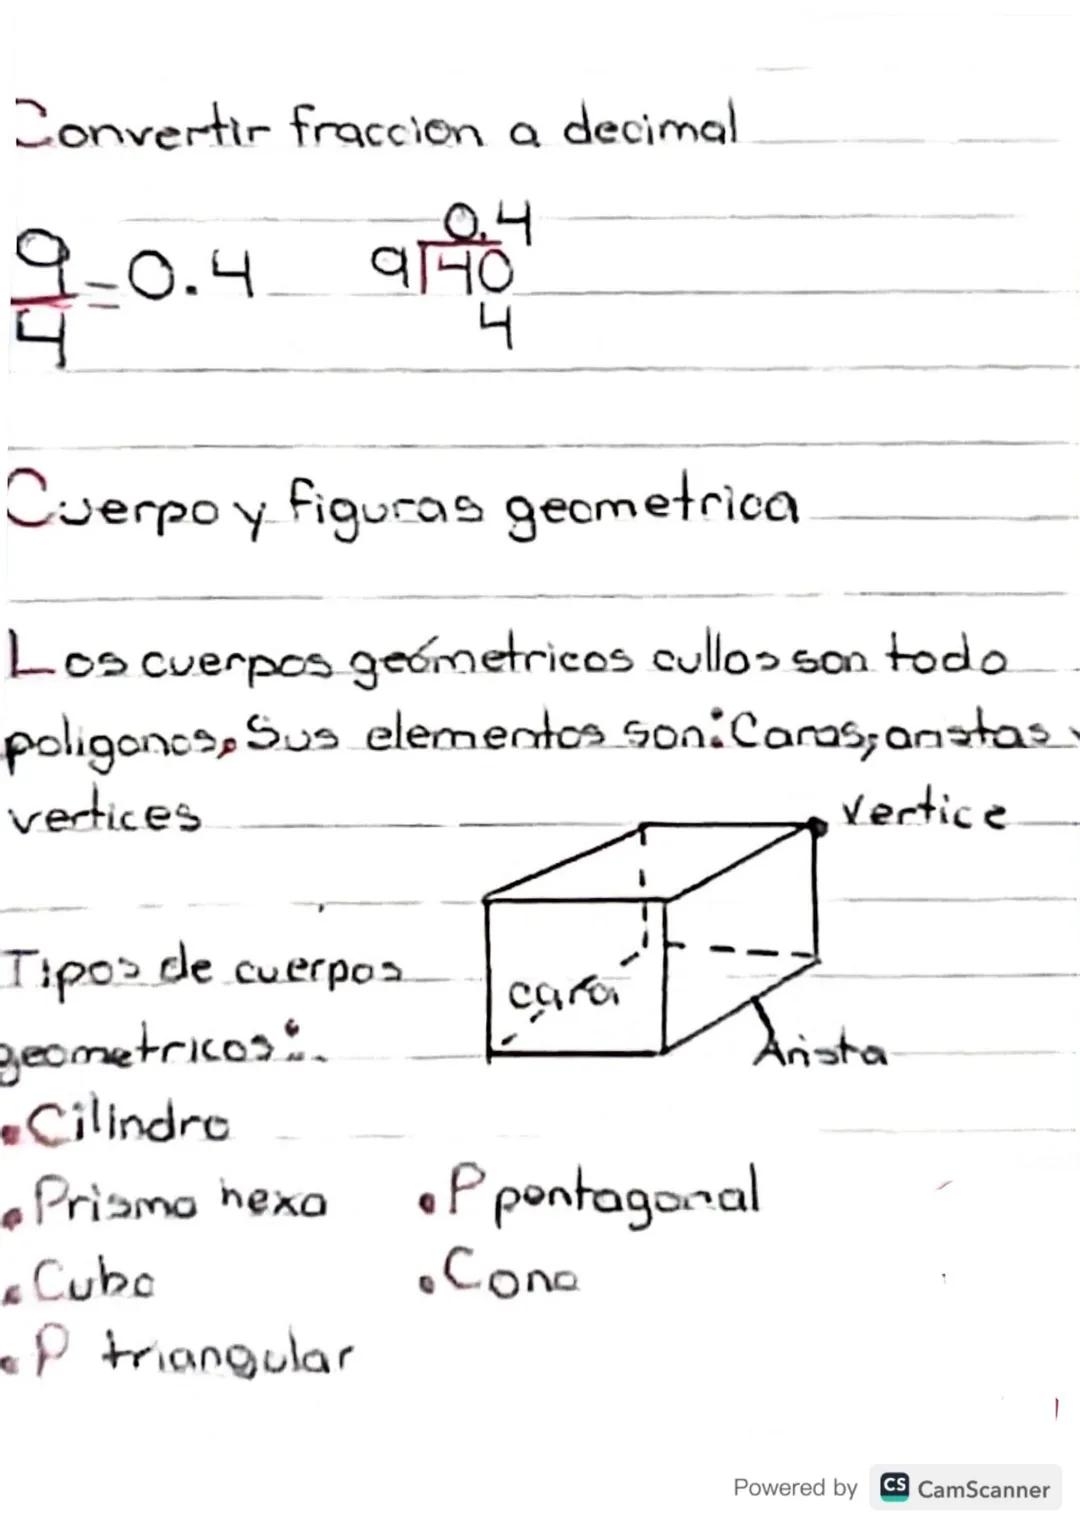 Convertir fraccion a decimal
9/4 = 0.4
0.4
9 40
4
Cuerpo y figuras geometrica
Los cuerpos geómetricos cullos son todo
poligonos, Sus elementos son: Caras, aristas y
vertices
vertice
Tipos de cuerpos
cara
geometricos:.
Arista
• Cilindro
• Prisma hexa
• P pentagonal
• Cubo
• Cono
• P triangular
Powered by CS CamScanner